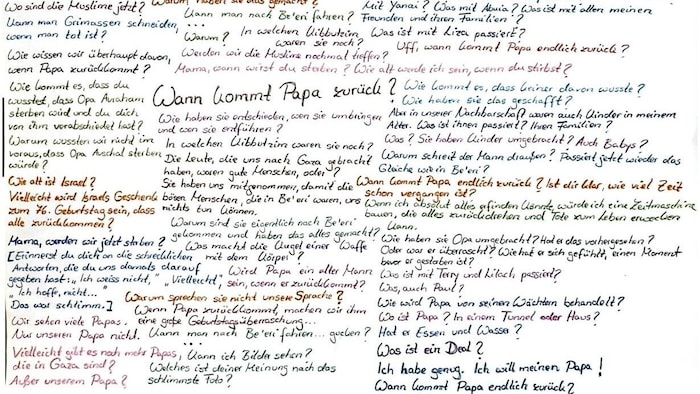 Wo sind die Muslime jetzt?
Kann man Grimassen schneiden,
wenn man tot ist?
Wie wissen wir überhaupt davon,
wenn Papa zurückkommt?
Wie kommt es, dass du
wusstest, dass Opa Avraham
sterben wird und du dich
von ihm verabschiedet hast?
Warum wussten wir nicht im
voraus, dass Opa Avshal sterben
würde?
Wie alt ist Israel?
Vielleicht wird Israels Geschenk
zum 76. Geburtstag sein, dass
alle zurückkommen?
Mama, werden wir jetzt sterben?
[Erinnerst du dich an die schrecklichen
Antworten, die du uns damals darauf
gegeben hast: „Ich weiss nicht," „Vielleicht",
„Ich hoffe, nicht..."
Das war schlimm.]
Wir sehen viele Papas.
Nur unseren Papa nicht.
Vielleicht gibt es noch mehr Papas,
die in Gaza sind?
Außer unserem Papa?
Warum haben sie das gemacht?
Kann man nach Be'eri fahren?
Warum? In welchen Kibbutzim
waren sie noch?
Werden wir die Muslime nochmal treffen?
Mama, wann wirst du sterben? Wie alt werde ich sein, wenn du stirbst?
Wann kommt Papa zurück?
Wie haben sie entschieden, wen sie umbringen
und wen sie entführen?
In welchen Kibbutzim waren sie noch?
Die Leute, die uns nach Gaza gebracht
haben, waren gute Menschen, oder?
Sie haben uns mitgenommen, damit die
bösen Menschen, die in Be'eri waren, uns
nichts tun können.
Warum sind sie eigentlich nach Be'eri
gekommen und haben das alles gemacht?
Was macht die Kugel einer Waffe
mit dem Körper?
Wird Papa ein alter Mann
sein, wenn er zurückkommt?
Warum sprechen sie nicht unsere Sprache?
Wenn Papa zurückkommt, machen wir ihm
eine große Geburtstagsüberraschung...
Kann man nach Be'eri fahren... gucken?
Kann ich Bilder sehen?
Welches ist deiner Meinung nach das
schlimmste Foto?
Mit Yanai? Was mit Was ist mit allen meinen
Freunden und ihren Familien?
Was ist mit Liza passiert?
Uff, wann kommt Papa endlich zurück?
Wie kommt es, dass davon wusste?
Wie haben sie das geschafft?
Aba in unserer Nachbarschaft waren auch Kinder in meinem
Alter. Was ist ihnen passiert? Ihren Familien?
Was? Sie haben Kinder umgebracht? Auch Babys?
Warum schreit der Mann draußen? Passiert jetzt wieder das
Gleiche wie in Be'eri?
Wann kommt Papa endlich zurück? Ist dir klar, wie viel Zeit
schon vergangen ist?
Wenn ich absolut alles erfinden könnte, würde ich eine Zeitmaschine
bauen, die alles zurückdrehen und Tote zum Leben erwecken
kann.
Wie haben sie Opa umgebracht? Hat er das vorhergesehen?
Oder war er überrascht? Wie hat er sich gefühlt, einen Moment
bevor er gestorben ist?
Was ist mit Terry und Lilach passiert?
Was, auch Paul?
Wie wird Papa von seinen Wächtern behandelt?
Wo ist Papa? In einem Tunnel oder Haus?
Hat er Essen und Wasser?
Was ist ein Deal?
Ich habe genug. Ich will meinen Papa!
Wann kommt Papa endlich zurück?